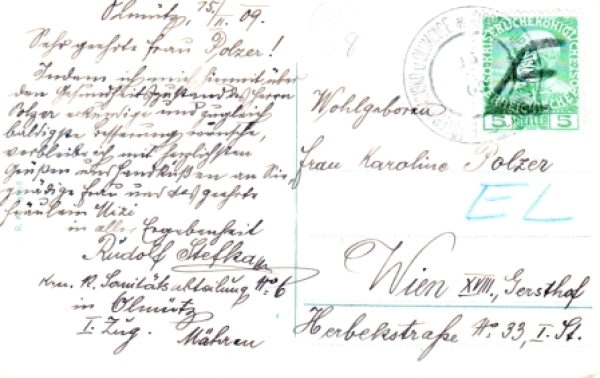 Olmütz, 15/II. 09.
Sehr geehrte Frau Polzer!
Indem ich mich hiemit über
den Gesundheitszustand des Herrn
Polzer erkundige und zugleich
baldigste Besserung wünsche,
verbleibe ich mit herzlichsten
Grüßen und Handküßen an Sie
gnädige Frau und das geehrte
Fräulein Mizi
in aller Ergebenheit
Rudolf Stefka
k.u.k. Sanitätsabteilung No. 6
in Olmütz
I. Zug. Mähren
Wohlgeboren
Frau Karoline Polzer
EL
Wien XVIII., Gersthof
Herbekstraße No. 33, I. St.
5 HELLER 5